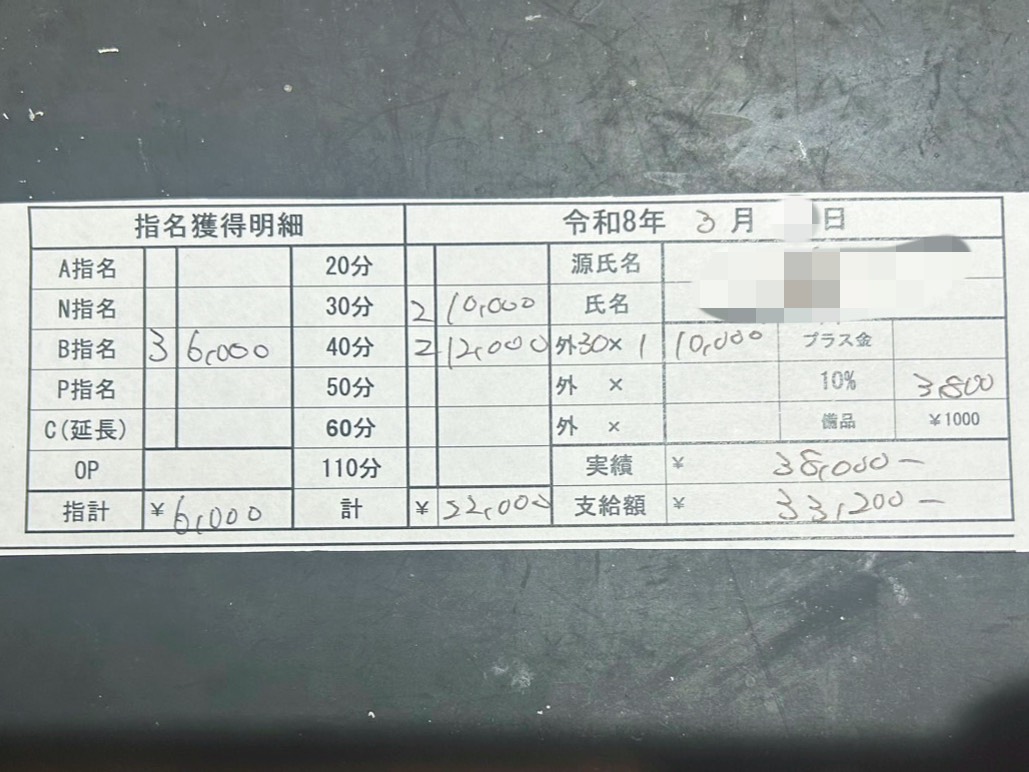 指名獲得明細 令和8年 3月 日
A指名 20分 源氏名
N指名 30分 2 10,000 氏名
B指名 3 6,000 40分 2 12,000 外30× 1 10,000 プラス金
P指名 50分 外 × 10% 3,800
C(延長) 60分 外 × 備品 ¥1000
OP 110分 実績 ¥ 38,000-
指計 ¥ 6,000 計 ¥ 22,000 支給額 ¥ 33,200-